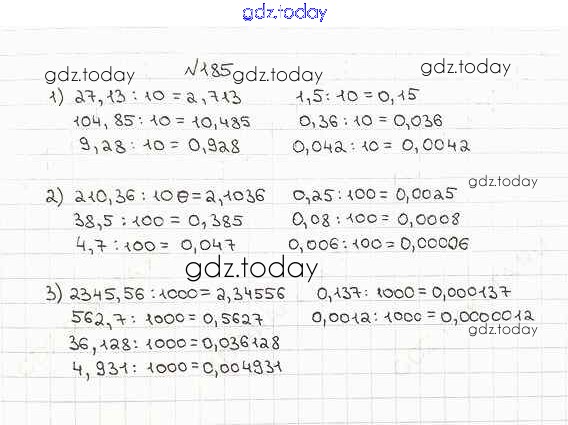 gdz.today
№185
gdz.today gdz.today gdz.today
1) 27,13 : 10 = 2,713 1,5 : 10 = 0,15
104,85 : 10 = 10,485 0,36 : 10 = 0,036
9,28 : 10 = 0,928 0,042 : 10 = 0,0042
gdz.today
2) 210,36 : 100 = 2,1036 0,25 : 100 = 0,0025
38,5 : 100 = 0,385 0,08 : 100 = 0,0008
4,7 : 100 = 0,047 0,006 : 100 = 0,00006
gdz.today
3) 2345,56 : 1000 = 2,34556 0,137 : 1000 = 0,000137
562,7 : 1000 = 0,5627 0,0012 : 1000 = 0,0000012
gdz.today
36,128 : 1000 = 0,036128
4,931 : 1000 = 0,004931